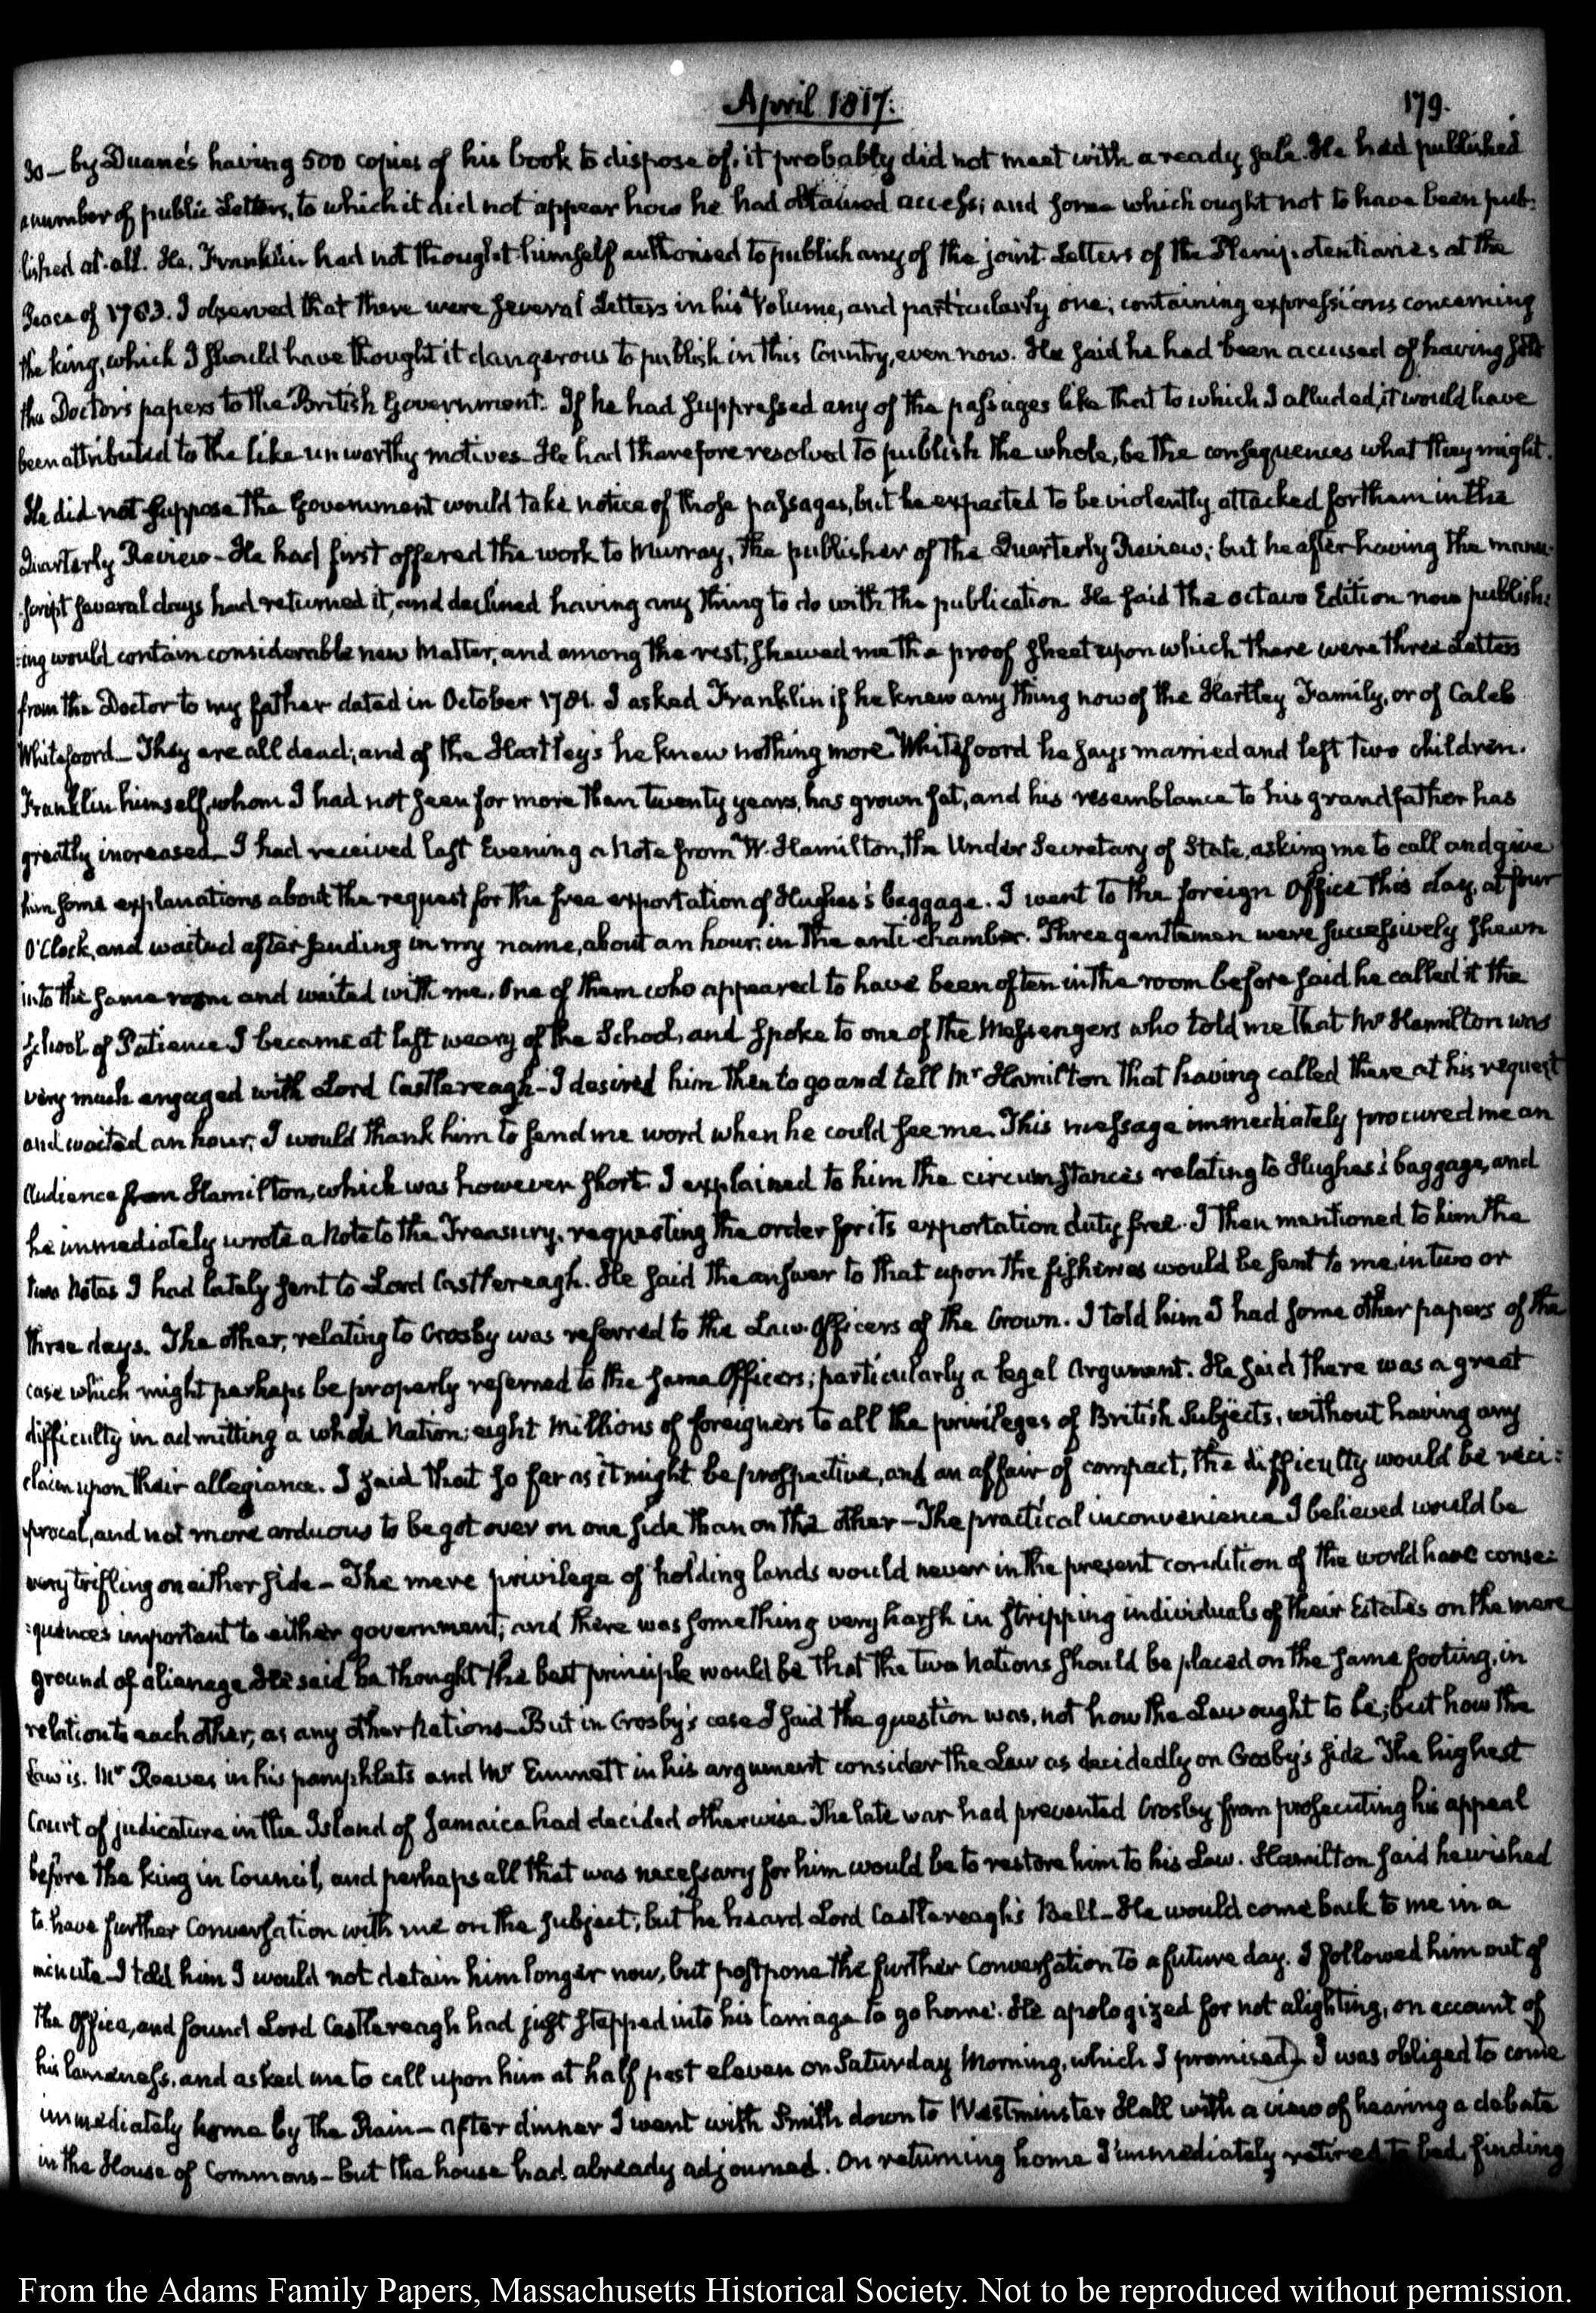 April 1817.
179.
30 — by Duane's having 500 copies of his book to dispose of, it probably did not meet with a ready sale. He had published
a number of public Letters, to which it did not appear how he had obtained access; and some which ought not to have been pub:
lished at all. He, Franklin had not thought himself authorised to publish any of the joint Letters of the Plenipotentiaries at the
Peace of 1783. I observed that there were several Letters in his Volume, and particularly one, containing expressions concerning
the king, which I should have thought it dangerous to publish in this Country, even now. He said he had been accused of having sold
the Doctor's papers to the British Government. If he had suppressed any of the passages like that to which I alluded, it would have
been attributed to the like unworthy motives — He had therefore resolved to publish the whole, be the consequences what they might.
He did not suppose the Government would take notice of those passages, but he expected to be violently attacked for them in the
Quarterly Review — He had first offered the work to Murray, the publisher of the Quarterly Review; but he after having the manu:
:script several days had returned it, and declined having any thing to do with the publication. He said the octavo Edition now publish:
:ing would contain considerable new Matter, and among the rest, shewed me the proof sheet upon which there were three Letters
from the Doctor to my father dated in October 1781. I asked Franklin if he knew any thing now of the Hartley Family, or of Caleb
Whitefoord — They are all dead; and of the Hartley's he knew nothing more. Whitefoord he says married and left two children.
Franklin himself, whom I had not seen for more than twenty years, has grown fat, and his resemblance to his grandfather has
greatly increased — I had received last Evening a Note from W. Hamilton, the Under Secretary of State, asking me to call and give
him some explanations about the request for the free exportation of Hughes's baggage. I went to the foreign Office this day, at four
O'Clock, and waited after sending in my name, about an hour, in the anti-chamber. Three gentlemen were successively shewn
into the same room and waited with me. One of them who appeared to have been often in the room before said he called it the
School of Patience. I became at last weary of the School, and spoke to one of the Messengers who told me that Mr Hamilton was
very much engaged with Lord Castlereagh — I desired him then to go and tell Mr Hamilton that having called there at his request
and waited an hour, I would thank him to send me word when he could see me. This message immediately procured me an
Audience from Hamilton, which was however short. I explained to him the circumstances relating to Hughes's baggage, and
he immediately wrote a Note to the Treasury, requesting the order for its exportation duty free. I then mentioned to him the
two Notes I had lately sent to Lord Castlereagh. He said the answer to that upon the fisheries would be sent to me, in two or
three days. The other, relating to Crosby was referred to the Law-Officers of the Crown. I told him I had some other papers of the
case which might perhaps be properly referred to the same Officers; particularly a legal Argument. He said there was a great
difficulty in admitting a whole Nation; eight Millions of foreigners to all the privileges of British Subjects, without having any
claim upon their allegiance. I said that so far as it might be prospective, and an affair of compact, the difficulty would be reci:
:procal, and not more arduous to be got over on one side than on the other — The practical inconvenience I believed would be
very trifling on either side — The mere privilege of holding lands would never in the present condition of the world have conse:
:quences important to either government; and there was something very harsh in stripping individuals of their Estates on the mere
ground of alienage. He said he thought the best principle would be that the two Nations should be placed on the same footing, in
relation to each other, as any other Nations — But in Crosby's case I said the question was, not how the Law ought to be, but how the
Law is. Mr Reeves in his pamphlets and Mr Emmett in his argument consider the Law as decidedly on Crosby's side. The highest
Court of judicature in the Island of Jamaica had decided otherwise. The late war had prevented Crosby from prosecuting his appeal
before the king in Council, and perhaps all that was necessary for him would be to restore him to his Law. Hamilton said he wished
to have further Conversation with me on the subject; but he heard Lord Castlereagh's Bell — He would come back to me in a
minute — I told him I would not detain him longer now, but postpone the further Conversation to a future day. I followed him out of
the Office, and found Lord Castlereagh had just stepped into his Carriage to go home. He apologized for not alighting, on account of
his lameness, and asked me to call upon him at half past eleven on Saturday Morning, which I promised) I was obliged to come
immediately home by the Rain — After dinner I went with Smith down to Westminster Hall with a view of hearing a debate
in the House of Commons — but the house had already adjourned. On returning home I immediately retired to bed, finding
From the Adams Family Papers, Massachusetts Historical Society. Not to be reproduced without permission.